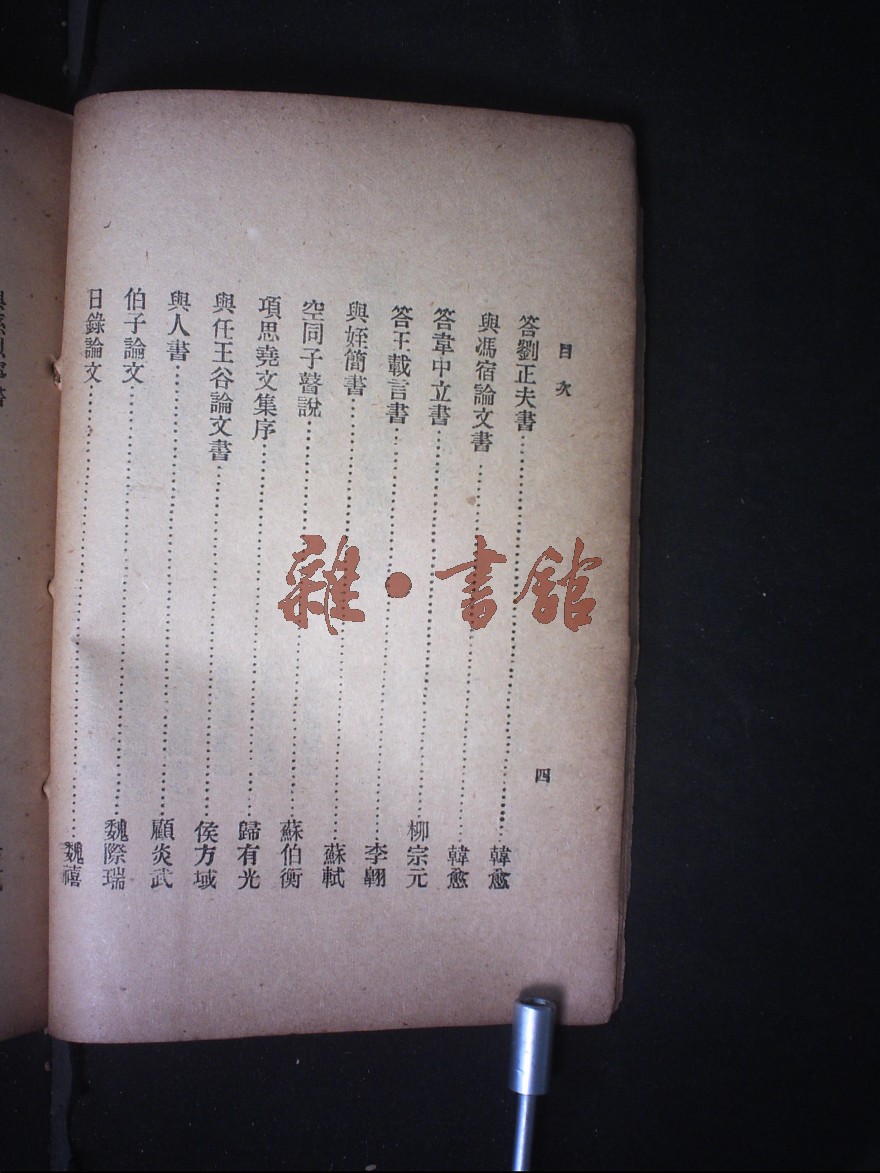 目次
四
答劉正夫書……韓愈
與馮宿論文書……韓愈
答韋中立書……柳宗元
答王載言書……李翺
與姪簡書……蘇軾
空同子瞽說……蘇伯衡
項思堯文集序……歸有光
與任王谷論文書……侯方域
與人書……顧炎武
伯子論文……魏際瑞
日錄論文……魏禧
雜·書館